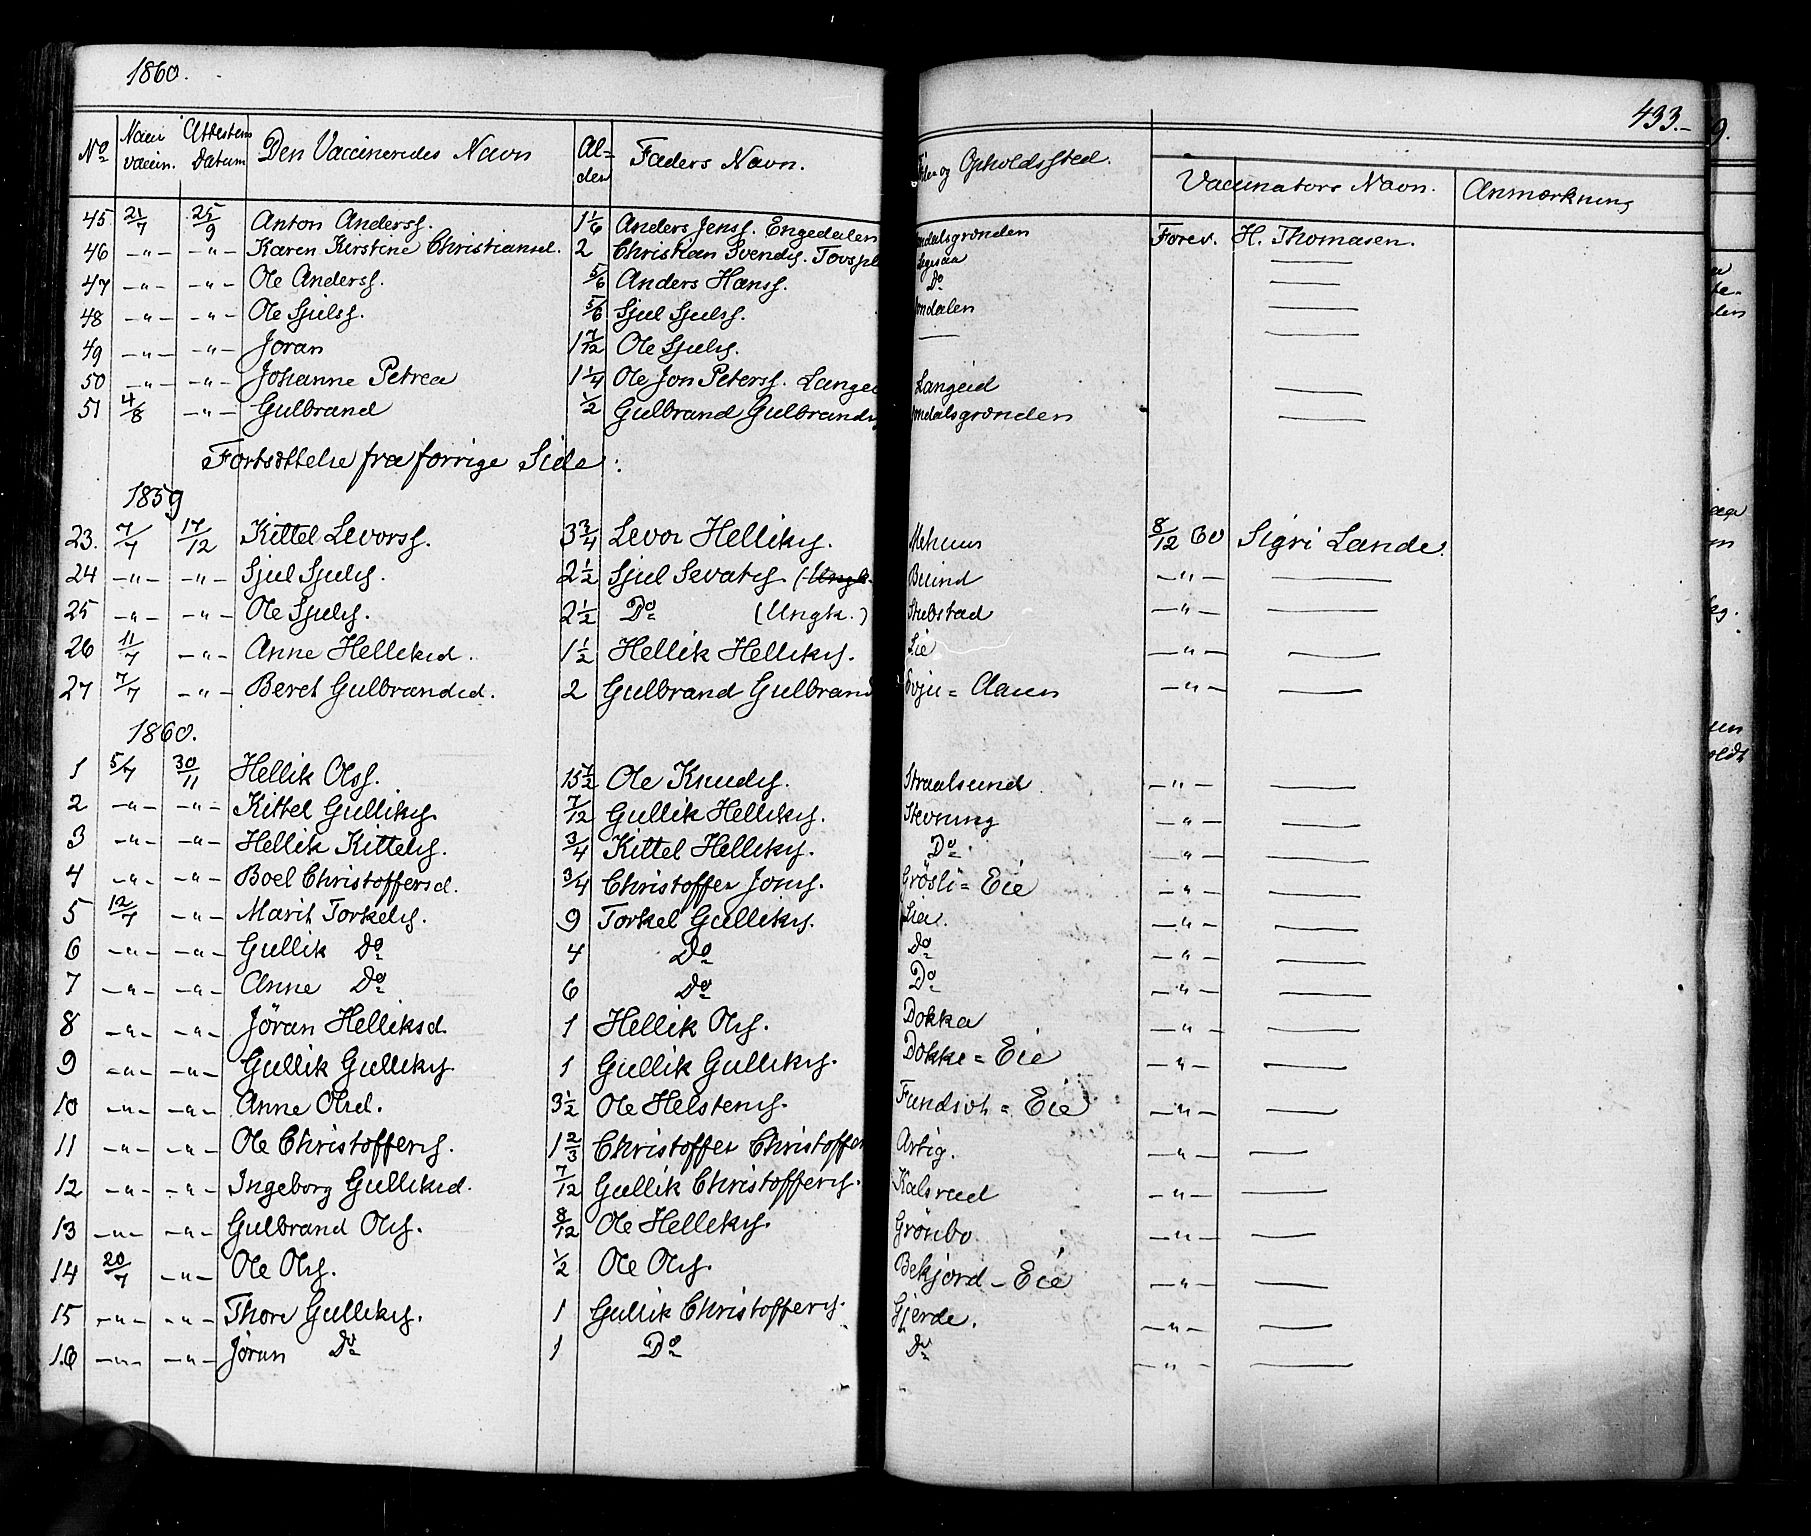 1860.
433.-
No Naar vaccin. Attestens Datum Den Vaccineredes Navn Alder Faders Navn. og Opholdssted. Vaccinators Navn. Anmærkning
45 21/7 25/9 Anton Anderss. 1 1/6 Anders Jenss. Engedalen Forev. H. Thomasen.
46 -"- -"- Karen Kirstine Christiansd. 2 Christian Svends. —
47 -"- -"- Ole Anderss. 5/6 Anders Hanss. Do —
48 -"- -"- Ole Sjuls. 5/6 Sjul Sjuls. —
49 -"- -"- Joran 1 7/12 Ole Sjuls. — —
50 -"- -"- Johanne Petrea 1 1/4 Ole Jon Peterss. Langeid —
51 4/8 -"- Gulbrand 1/2 Gulbrand Gulbrands —
Fortsættelse fra forrige Side:
1859
23. 7/7 17/12 Kittel Levorss. 3 3/4 Levor Helliks. 8/12 60 Sigri Lande.
24 -"- -"- Sjul Sjuls. 2 1/2 Sjul Sevats. (Ungk. Buind -"- —
25 -"- -"- Ole Sjuls. 2 1/2 Do (Ungk.) Stubstad -"- —
26 11/7 -"- Anne Helliksd. 1 1/2 Hellik Helliks. Lie -"- —
27 7/7 -"- Beret Gulbrandsd. 2 Gulbrand Gulbrand -"- —
1860.
1 5/7 30/11 Hellik Olss. 15 1/2 Ole Knuds. Straalsund. -"- —
2 -"- -"- Kittel Gulliks. 7/12 Gullik Helliks. Stevning -"- —
3 -"- -"- Hellik Kittels. 3/4 Kittel Helliks. Do -"- —
4 -"- -"- Boel Christoffersd. 3/4 Christoffer Jons. Grøsli=Eie -"- —
5 12/7 -"- Marit Torkels. 9 Torkel Gulliks. Lia. -"- —
6 -"- -"- Gullik Do 4 Do Do -"- —
7 -"- -"- Anne Do 6 Do Do -"- —
8 -"- -"- Jöran Helliksd. 1 Hellik Ols. Dokka -"- —
9 -"- -"- Gullik Gulliks. 1 Gullik Gulliks. Dokke=Eie -"- —
10 -"- -"- Anne Olsd. 3 1/2 Ole Helstens. -"- —
11 -"- -"- Ole Christoffers. 1 2/3 Christoffer Christoffer Artig. -"- —
12 -"- -"- Ingeborg Gulliksd. 7/12 Gullik Christoffers. Kalsrud -"- —
13 -"- -"- Gulbrand Ols. 8/12 Ole Helliks. Grönbo -"- —
14 20/7 -"- Ole Ols. 1/2 Ole Ols. Bekjord-Eie -"- —
15 -"- -"- Thore Gulliks. 1 Gullik Christoffers. Gjerde. -"- —
16 -"- -"- Jøran Do 1 Do Do -"- —